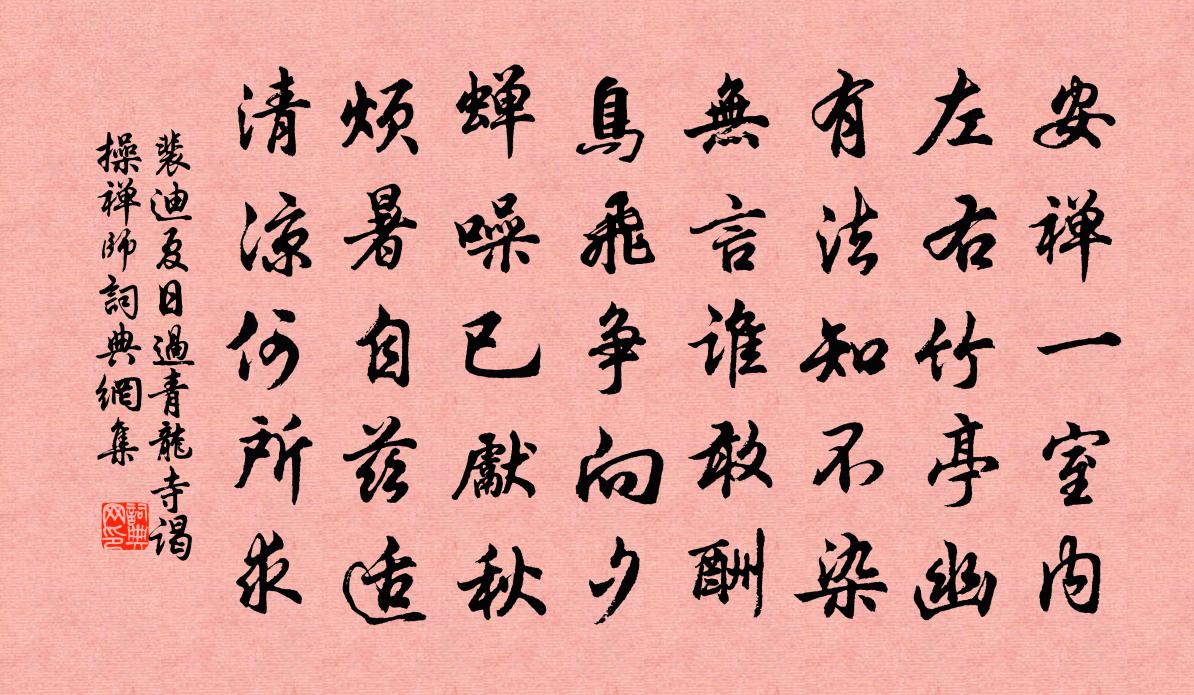 安禅一室内
左右竹亭幽
有法知不染
無言誰敢酬
鳥飛争向夕
蝉噪已獻秋
煩暑自茲适
清凉何所求
裴迪夏日過青龍寺謁
操禅師詞典網集
詞典网印